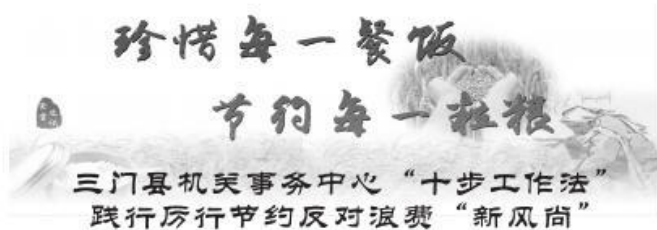 珍惜每一餐饭
节约每一粒粮
三门县机关事务中心“十步工作法”
践行厉行节约反对浪费“新风尚”